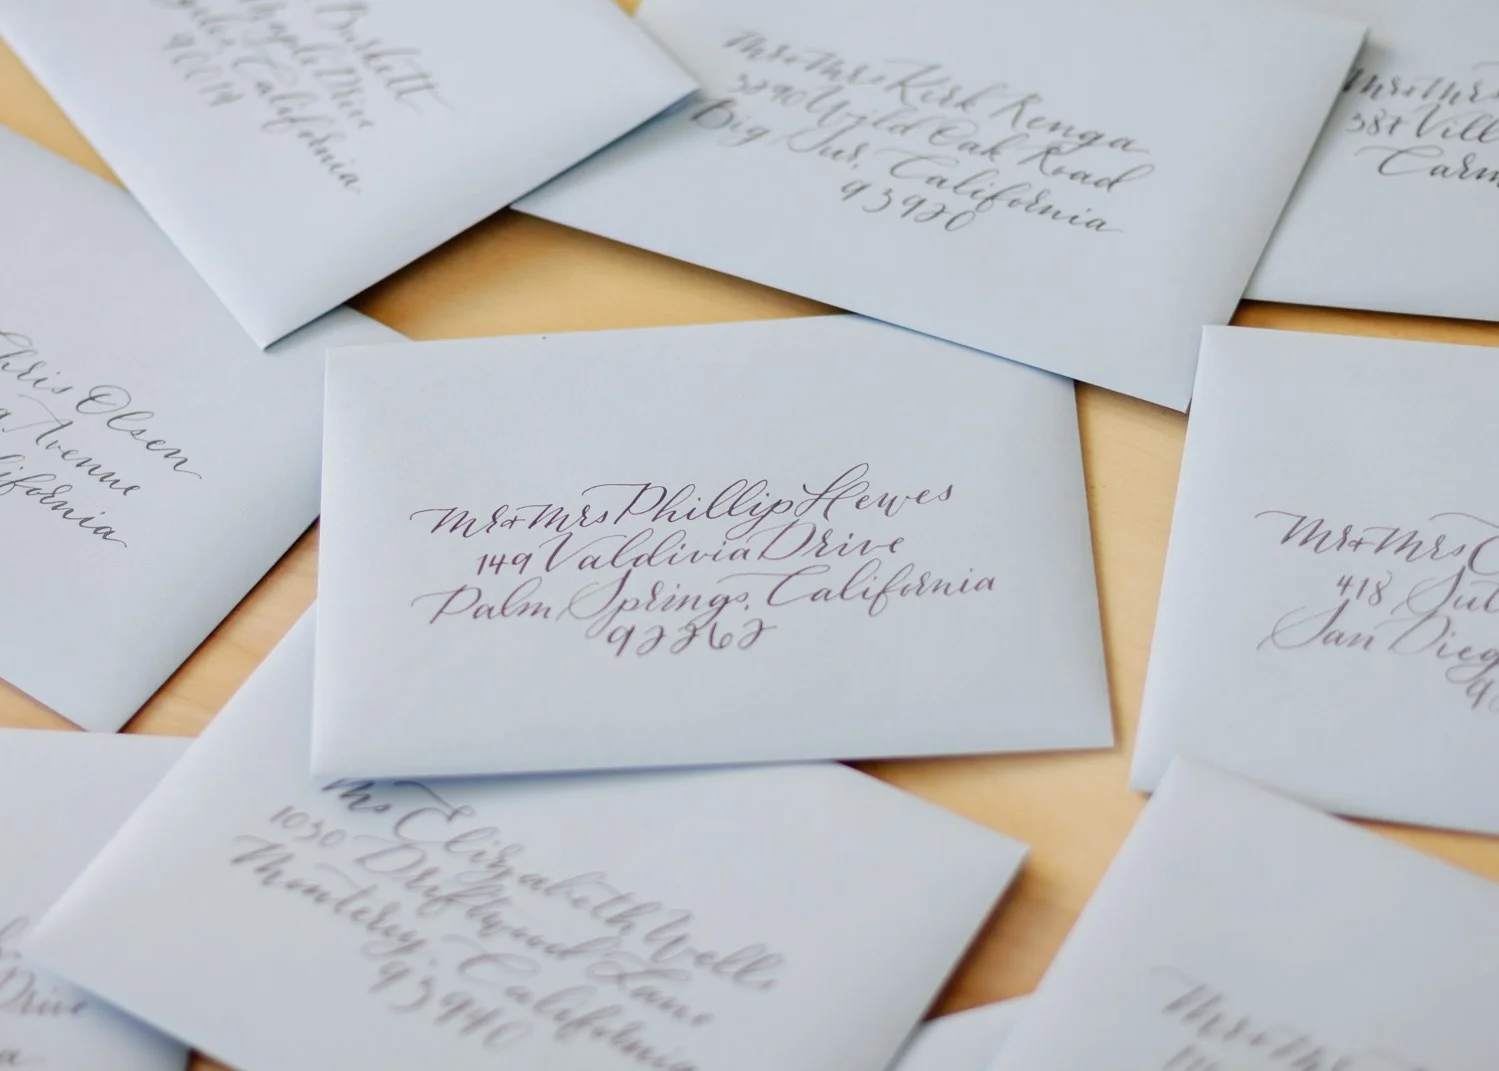 Burkett
Maple Drive
California
90014
Mr & Mrs Kirk Renga
3290 Wild Oak Road
Big Sur, California
93920
Mr & Mrs
387 Vill
Carm
Chris Olsen
a Avenue
lifornia
Mr & Mrs Phillip Hewes
149 Valdivia Drive
Palm Springs, California
92262
Mr & Mrs C
418 Sut
San Dieg
Ms Elizabeth Wells
1030 Driftwood Lane
Monterey, California
93940
Drive
a
Mr & Mrs